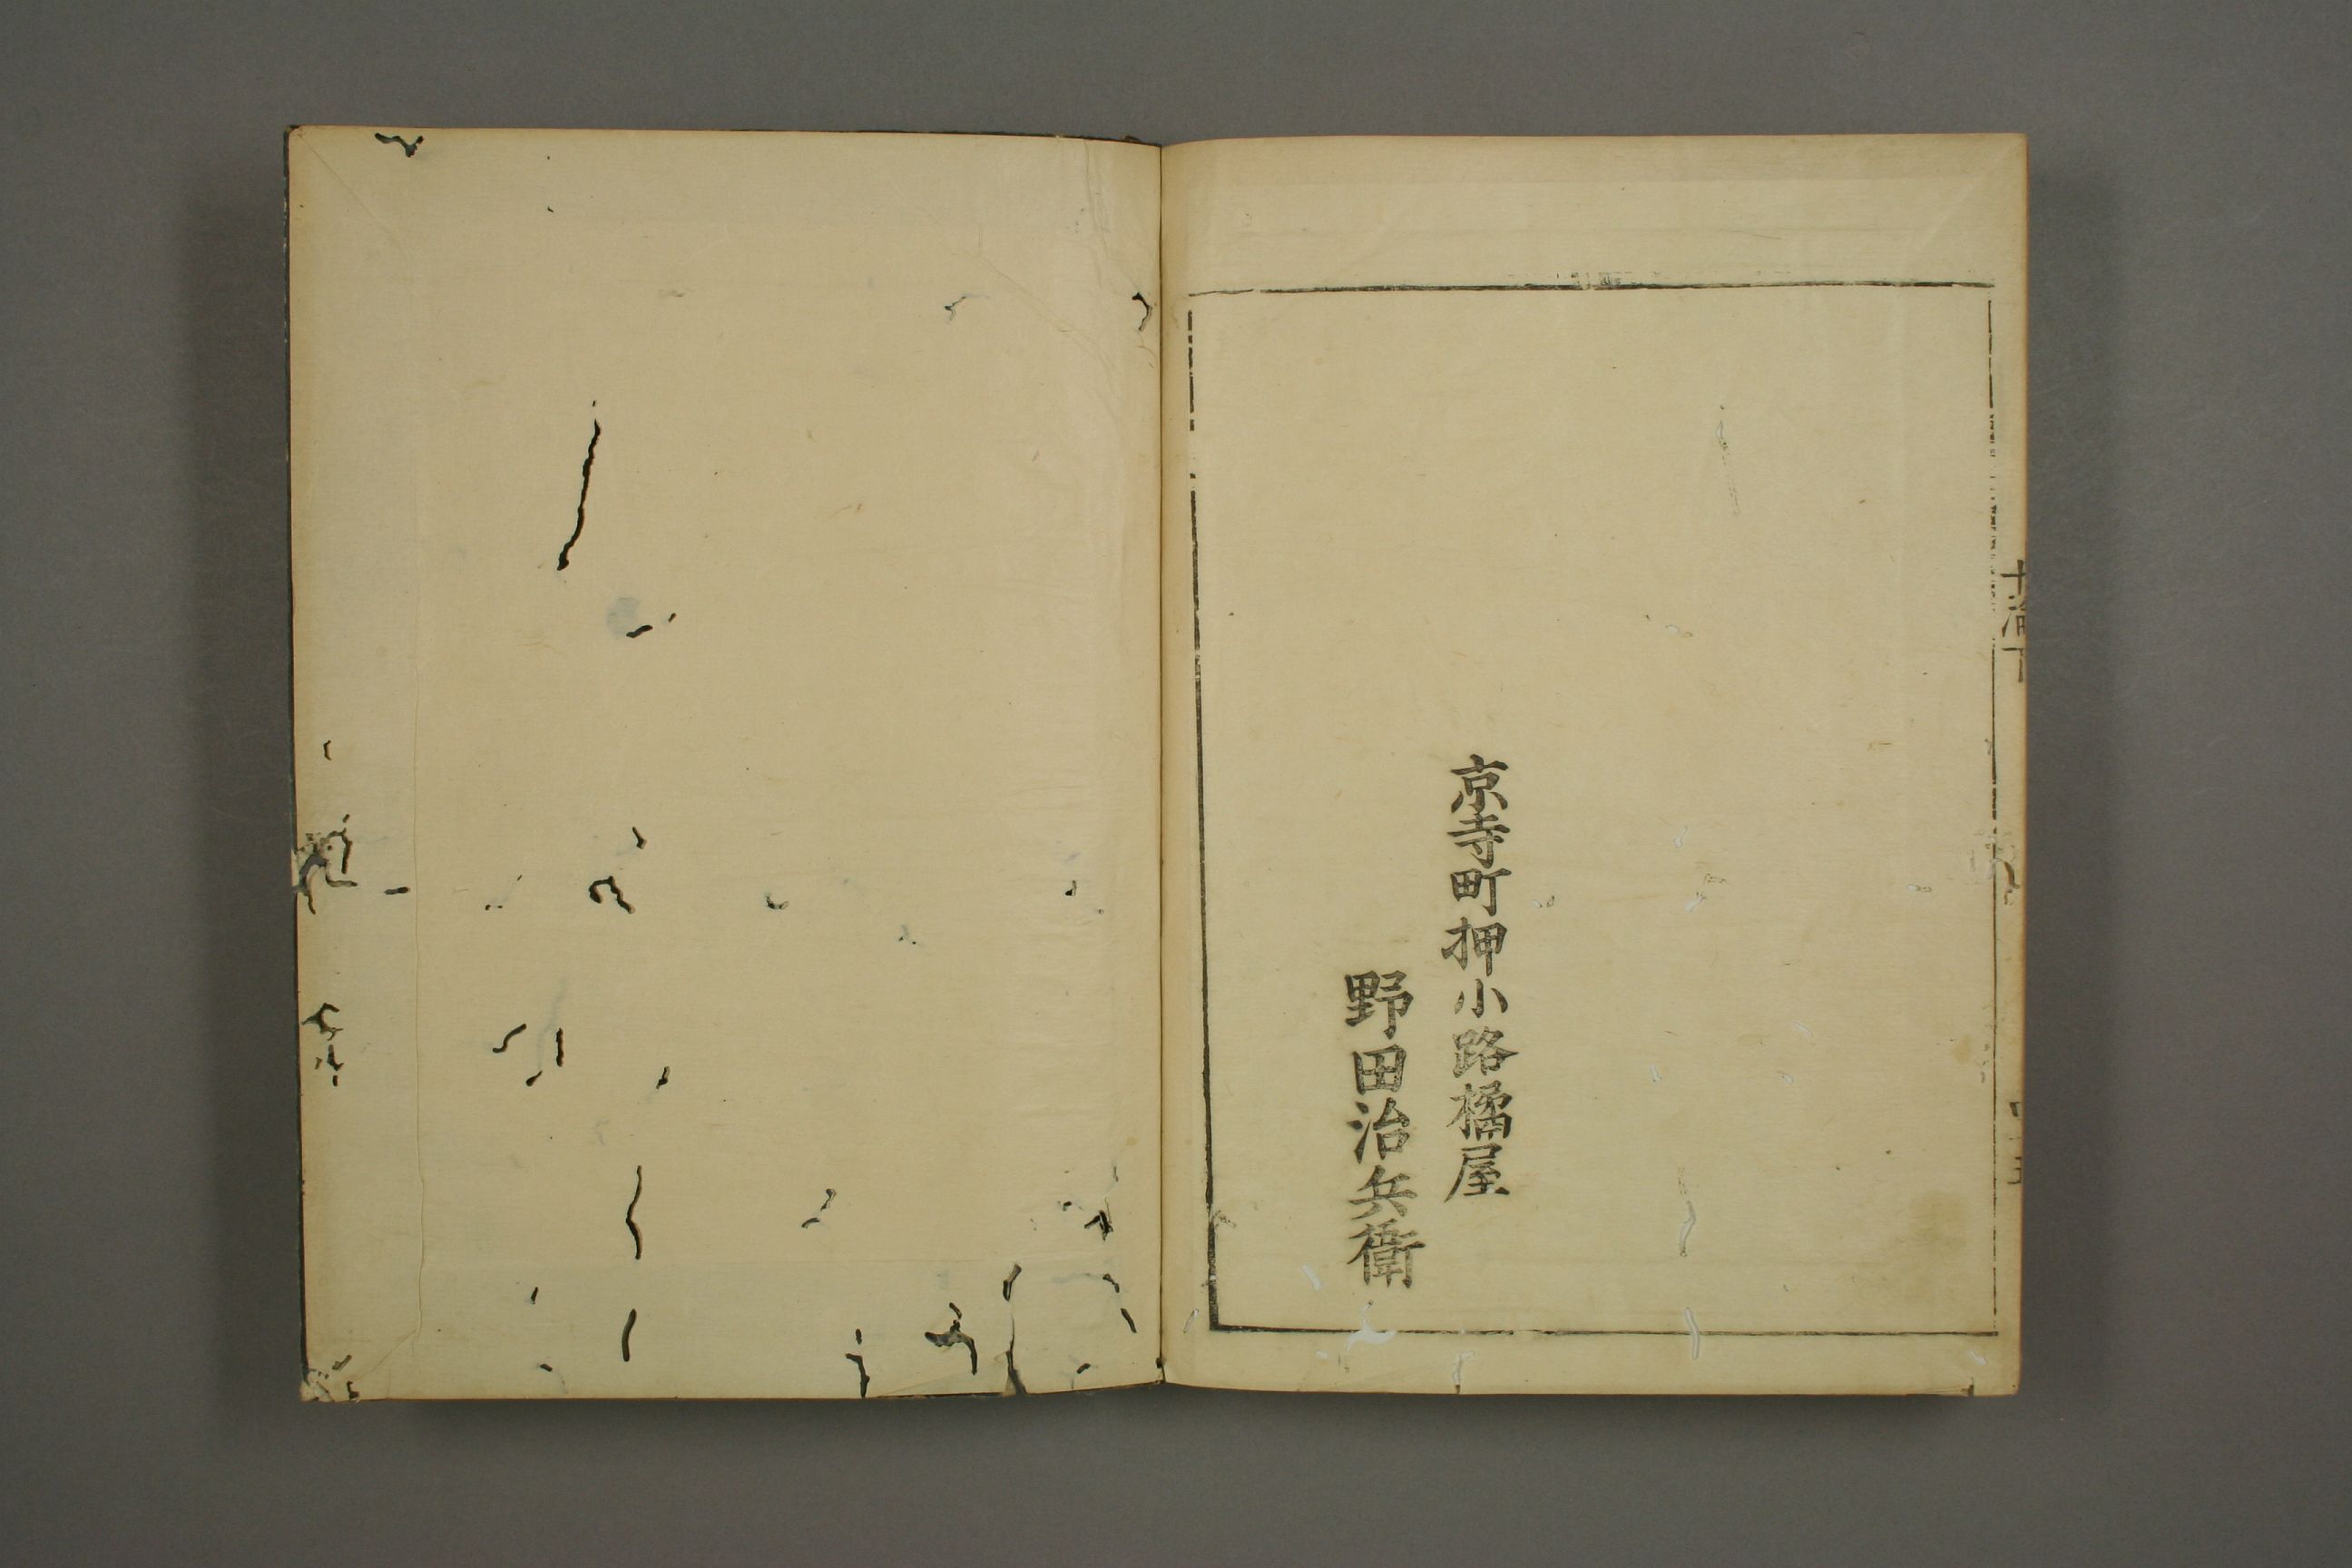 京寺町押小路橘屋
野田治兵衛